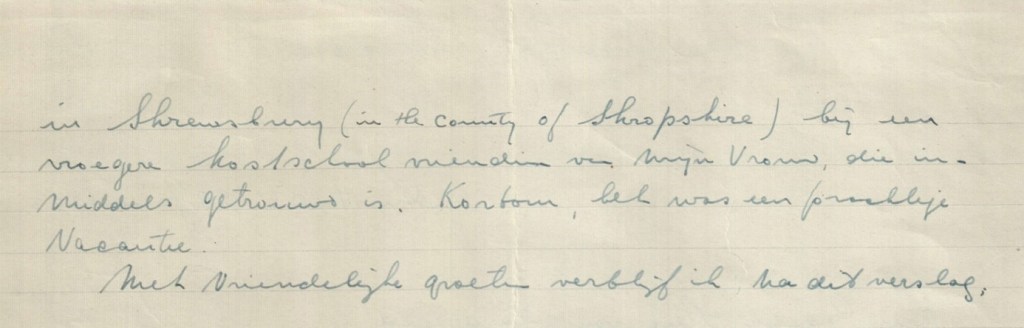 in Shrewsbury (in the county of Shropshire) bij een
vroegere kostschool vriendin van mijn Vrouw, die in-
middels getrouwd is. Kortom, het was een prachtige
Vacantie.
Met Vriendelijke groeten verblijf ik na dit verslag,